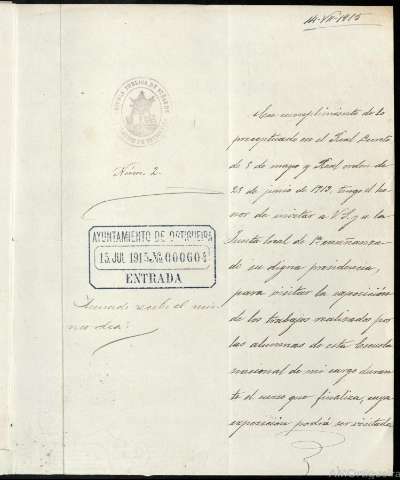 14-VII-1915
Núm. 2.
AYUNTAMIENTO DE ORTIGUEIRA
15 JUL 1915 Nº 000604
ENTRADA
el mis-
mo día.
En cumplimiento de lo
preceptuado en el Real Decreto
de 5 de mayo y Real orden de
25 de junio de 1913, tengo el ho-
nor de invitar a V.S. y a la
Junta local de 1ª enseñanza
de su digna presidencia,
para visitar la exposición
de los trabajos realizados por
las alumnas de esta Escuela
nacional de mi cargo duran-
te el curso que finaliza, cuya
exposición podrá ser visitada